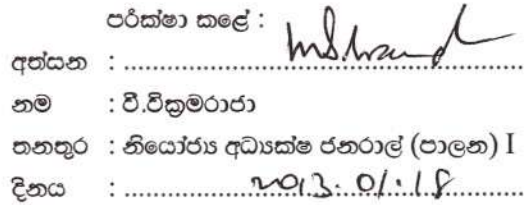 පරීක්ෂා කළේ :
අත්සන : ..........................................................
නම : වී.වික්‍රමරාජා
තනතුර : නියෝජ්‍ය අධ්‍යක්ෂ ජනරාල් (පාලන) I
දිනය : .................2013. 01. 18.....................